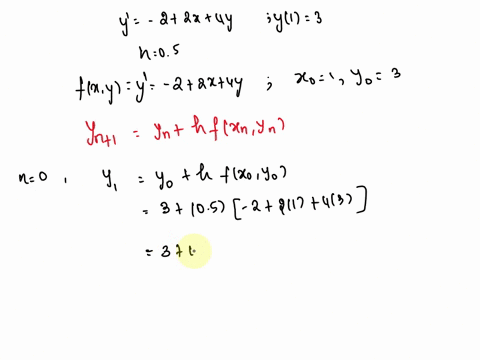 y' = -2+2x+4y ; y(1)=3
h=0.5
f(x,y) = y' = -2+2x+4y ; x₀=1, y₀ = 3
yₙ₊₁ = yₙ + h f(xₙ,yₙ)
n=0 , y₁ = y₀ + h f(x₀,y₀)
= 3 + (0.5) [-2+2(1)+4(3)]
= 3 +